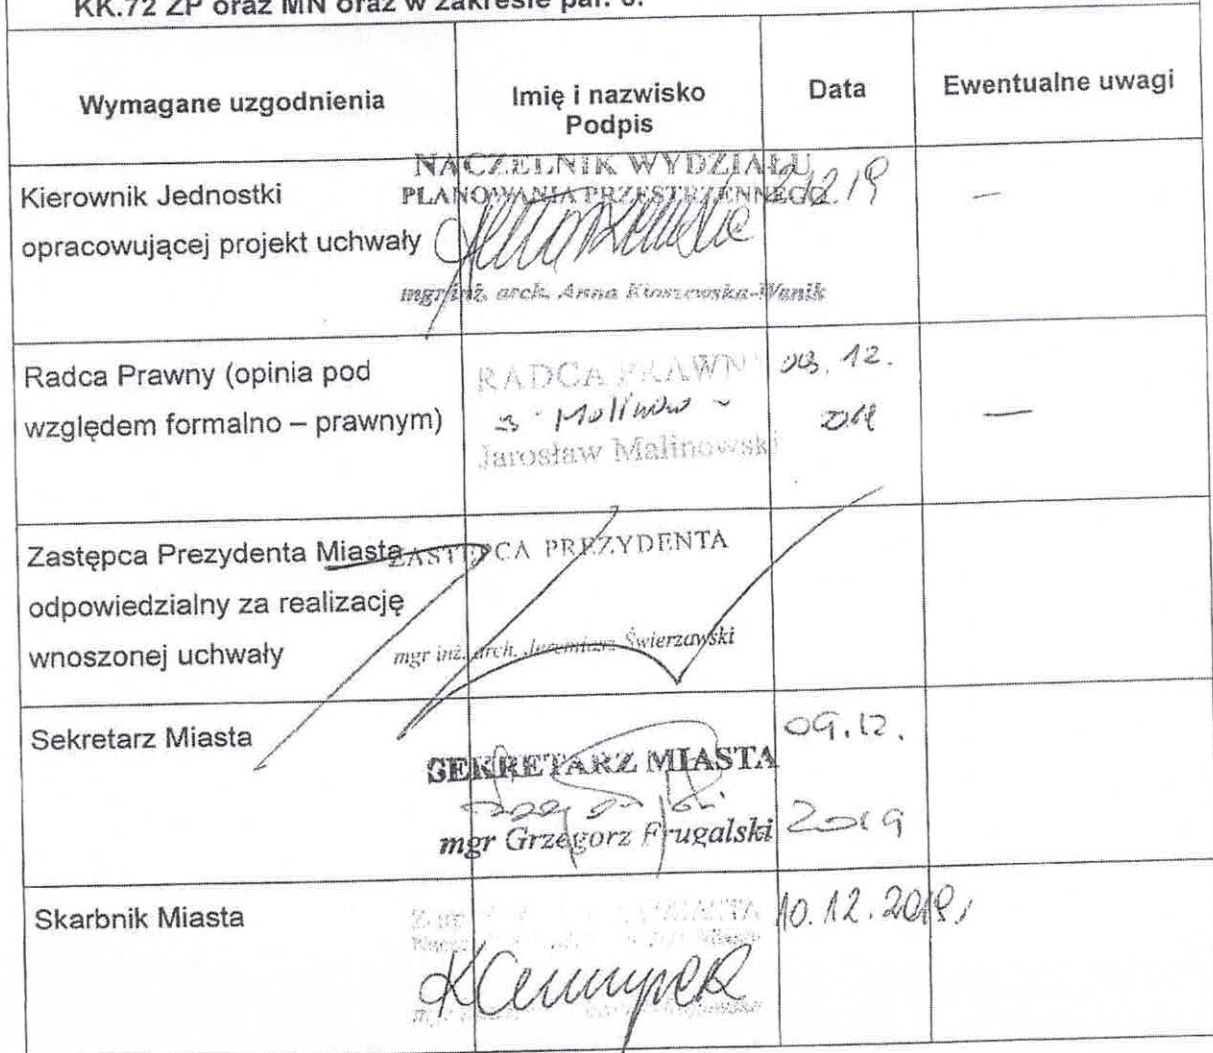 KK.72 ZP oraz MN oraz w zakresie par. 6.
Wymagane uzgodnienia
Imię i nazwisko
Podpis
Data
Ewentualne uwagi
Kierownik Jednostki
opracowującej projekt uchwały
NACZELNIK WYDZIAŁU
PLANOWANIA PRZESTRZENNEGO
mgr inż. arch. Anna Kłoszewska-Wanik
12.19
–
Radca Prawny (opinia pod
względem formalno – prawnym)
RADCA PRAWN
Jarosław Malinowski
03.12.
—
Zastępca Prezydenta Miasta
odpowiedzialny za realizację
wnoszonej uchwały
ZASTĘPCA PREZYDENTA
mgr inż. arch. Jeremiasz Świerzawski
Sekretarz Miasta
SEKRETARZ MIASTA
mgr Grzegorz Frugalski
09.12.
2019
Skarbnik Miasta
MIASTA
10.12.2019,